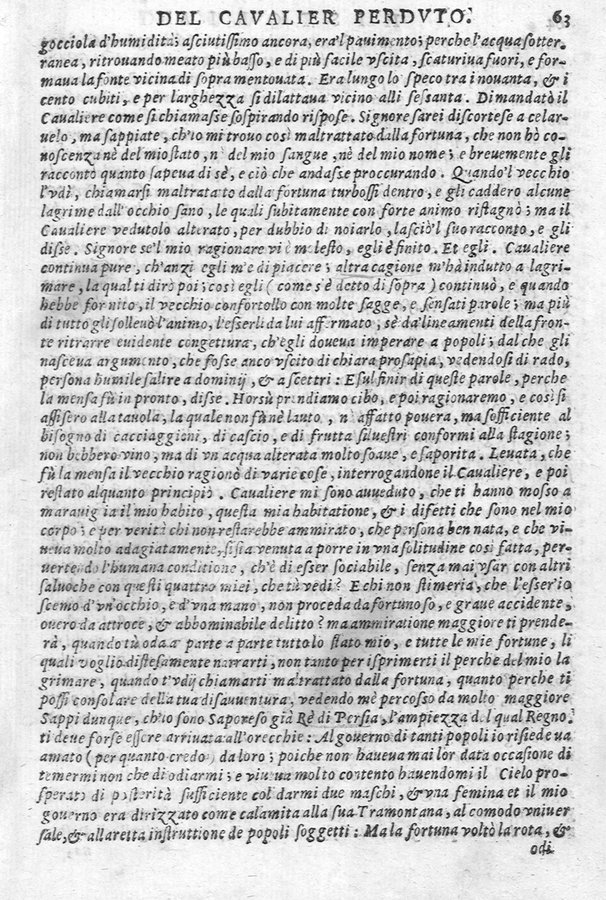 DEL CAVALIER PERDVTO. 63
gocciola d'humidità; asciutissimo ancora, era'l pauimento; perche l'acqua sotter-
ranea, ritrouando meato più basso, e di più facile vscita, scaturiua fuori, e for-
maua la fonte vicina di sopra mentouata. Era lungo lo speco tra i nouanta, & i
cento cubiti, e per larghezza si dilattaua vicino alli sessanta. Dimandatò il
Caualiere come si chiamasse sospirando rispose. Signore sarei discortese a celar-
uelo, ma sappiate, ch'io mi trouo così maltrattato dalla fortuna, che non hò co-
noscenza nè del mio stato, nè del mio sangue, nè del mio nome; e breuemente gli
raccontò quanto sapeua di sè, e ciò che andasse proccurando. Quando'l vecchio
l'vdì, chiamarsi maltratato dalla fortuna turbossi dentro, e gli caddero alcune
lagrime dall'occhio sano, le quali subitamente con forte animo ristagnò; ma il
Caualiere vedutolo alterato, per dubbio di noiarlo, lasciò'l suo racconto, e gli
disse. Signore se'l mio ragionare vi è molesto, egli è finito. Et egli. Caualiere
continua pure, ch'anzi egli m'è di piacere; altra cagione m'hà indutto a lagri-
mare, la qual ti dirò poi; così egli (come s'è detto di sopra) continuò, e quando
hebbe fornito, il vecchio confortollo con molte sagge, e sensati parole; ma più
di tutto gli solleuò l'animo, l'esserli da lui affermato; sè da'lineamenti della fron-
te ritrarre euidente congettura, ch'egli doueua imperare a popoli; dal che gli
nasceua argumento, che fosse anco vscito di chiara prosapia, vedendosi di rado,
persona humile salire a dominij, & a scettri: E sul finir di queste parole, perche
la mensa fù in pronto, disse. Horsù prendiamo cibo, e poi ragionaremo, e così si
assisero alla tauola, la quale non fù nè lauta, nè affatto pouera, ma sofficiente al
bisogno di cacciaggioni, di cascio, e di frutta siluestri conformi alla stagione;
non bebbero vino, ma di vn'acqua alterata molto soaue, e saporita. Leuata, che
fù la mensa il vecchio ragionò di varie cose, interrogandone il Caualiere, e poi
restato alquanto principiò. Caualiere mi sono auueduto, che ti hanno mosso a
marauiglia il mio habito, questa mia habitatione, & i difetti che sono nel mio
corpo; e per verità chi non restarebbe ammirato, che persona ben nata, e che vi-
ueua molto adagiatamente, si sia venuta a porre in vna solitudine così fatta, per-
uertendo l'humana conditione, ch'è di esser sociabile, senza mai vsar con altri
saluoche con questi quattro miei, che tù vedi? E chi non stimeria, che l'esser'io
scemo d'vn'occhio, e d'vna mano, non proceda da fortunoso, e graue accidente,
ouero da attroce, & abbominabile delitto? ma ammiratione maggiore ti prende-
rà, quando tù oda a parte a parte tutto lo stato mio, e tutte le mie fortune, li
quali voglio distesamente narrarti, non tanto per isprimerti il perche del mio la
grimare, quando t'vdij chiamarti maltrattato dalla fortuna, quanto perche ti
possi consolare della tua disauuentura, vedendo mè percosso da molto maggiore
Sappi dunque, ch'io sono Saporeso già Rè di Persia, l'ampiezza del qual Regno
ti deue forse essere arriuata all'orecchie: Al gouerno di tanti popoli io risiedeua
amato (per quanto credo) da loro; poiche non haueua mai lor data occasione di
temermi non che di odiarmi; e viueua molto contento hauendomi il Cielo pro-
sperato di posterità sufficiente col darmi due maschi, & vna femina et il mio
gouerno era dirizzato come calamita alla sua Tramontana, al comodo vniuer
sale, & alla retta instruttione de popoli soggetti: Ma la fortuna voltò la rota, &
odi